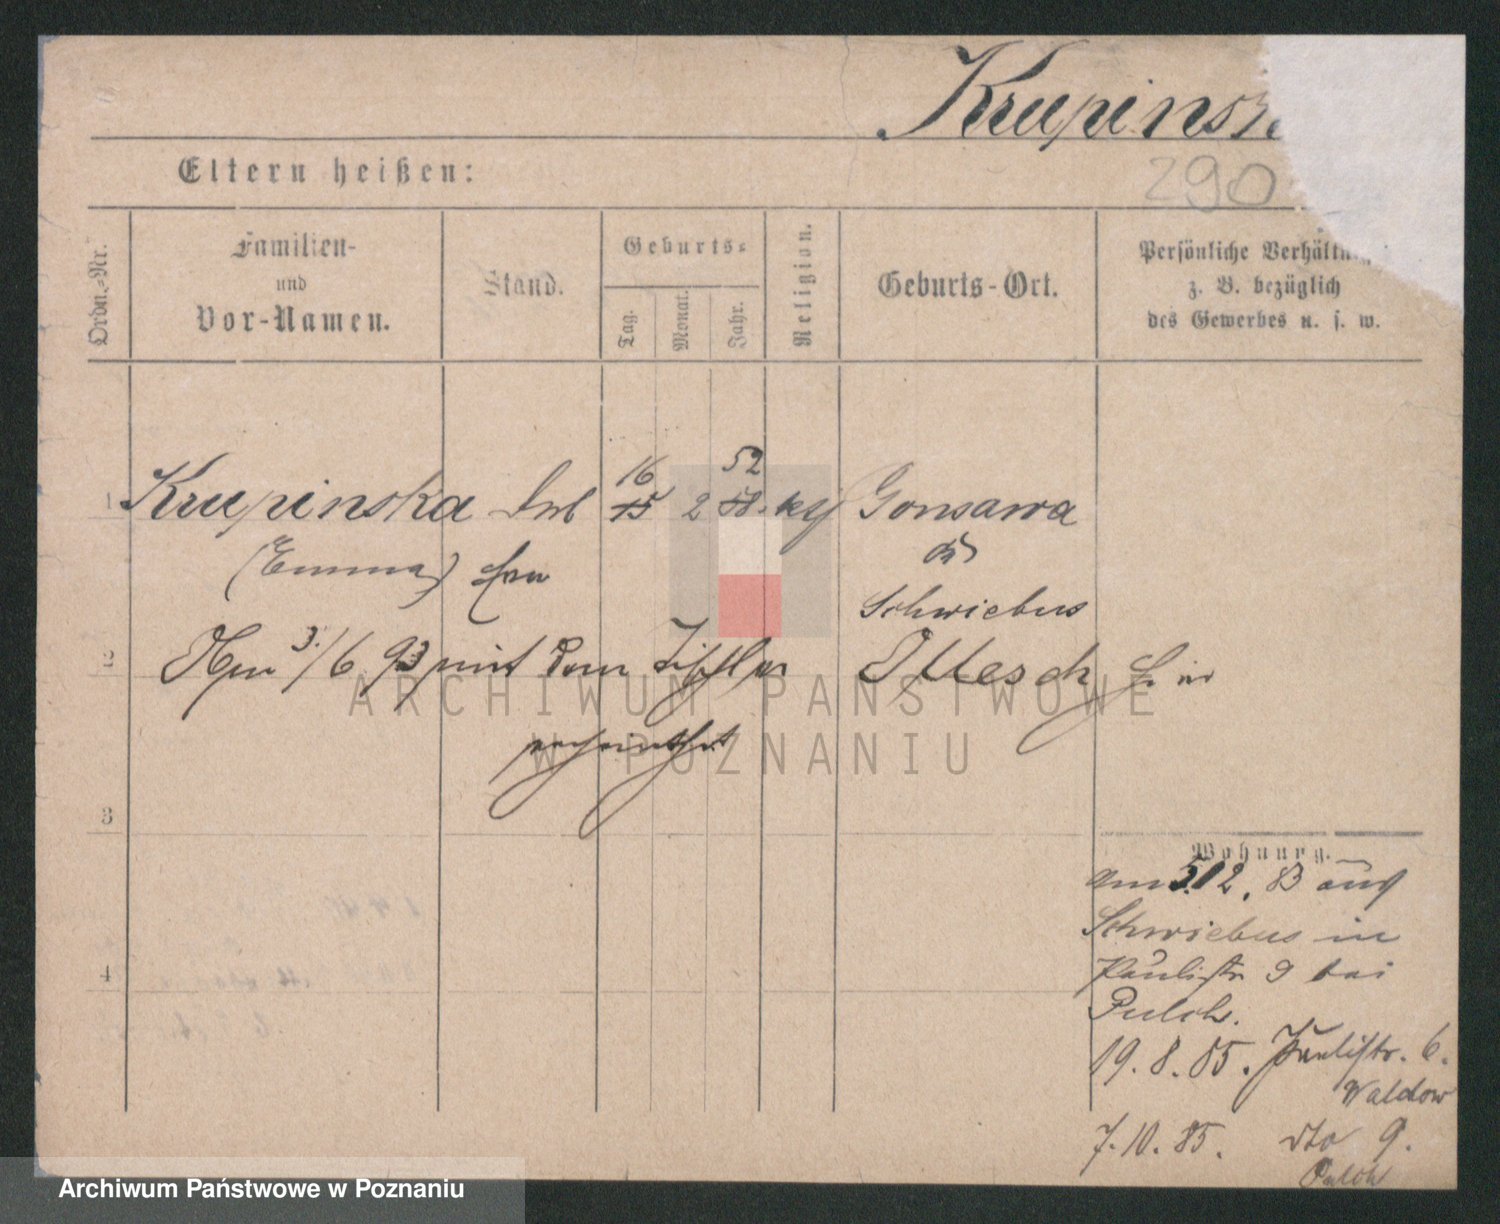 Krupinsk
290
Eltern heißen:
Ordn.-Nr.
Familien-
und
Vor-Namen.
Stand.
Geburts-
Tag.
Monat.
Jahr.
Religion.
Geburts-Ort.
Persönliche Verhältn
z. B. bezüglich
des Gewerbes u. s. w.
16 52
1 Krupinska 15 2 58. kth Gonsawa
(Emma) Frau
Schwiebus
2 Am 3./6 93 mit dem Tischler Ottesch hier
verheirathet
3
Wohnung.
am 5.12. 83 aus
Schwiebus in
Paulistr 9 bei
Pulch.
4
19. 8. 85. Paulistr. 6.
Waldow
7. 10. 85. dto 9.
Pulch
ARCHIWUM PAŃSTWOWE
W POZNANIU
Archiwum Państwowe w Poznaniu